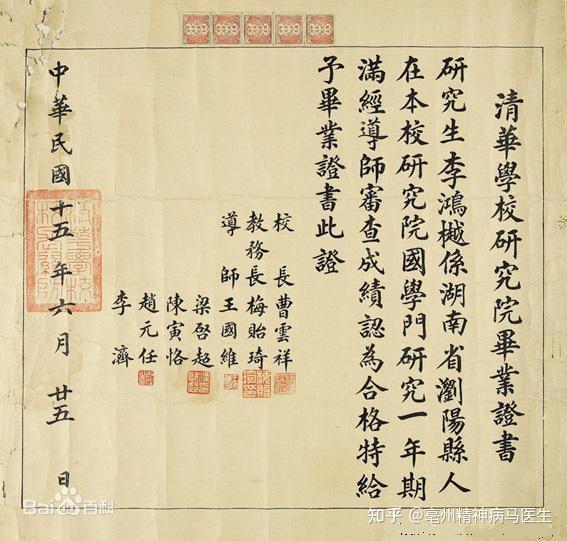 清華學校研究院畢業證書
研究生李鴻樾係湖南省瀏陽縣人
在本校研究院國學門研究一年期
滿經導師審查成績認為合格特給
予畢業證書此證
校長曹雲祥
教務長梅貽琦
導師王國維
梁啓超
陳寅恪
趙元任
李濟
中華民國十五年六月廿五日
Bai百科
知乎@亳州精神病马医生